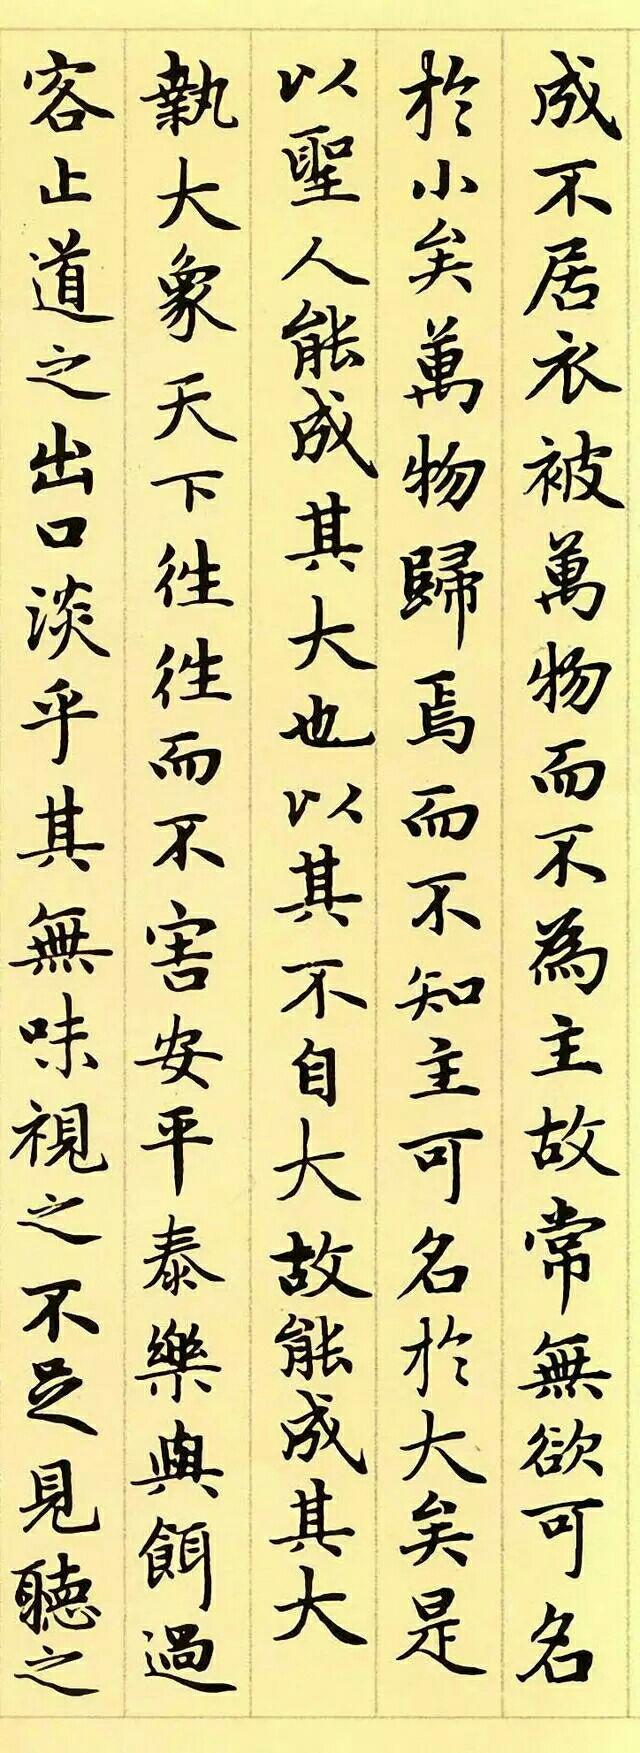 成不居衣被萬物而不為主故常無欲可名
於小矣萬物歸焉而不知主可名於大矣是
以聖人能成其大也以其不自大故能成其大
執大象天下往往而不害安平泰樂與餌過
客止道之出口淡乎其無味視之不足見聽之